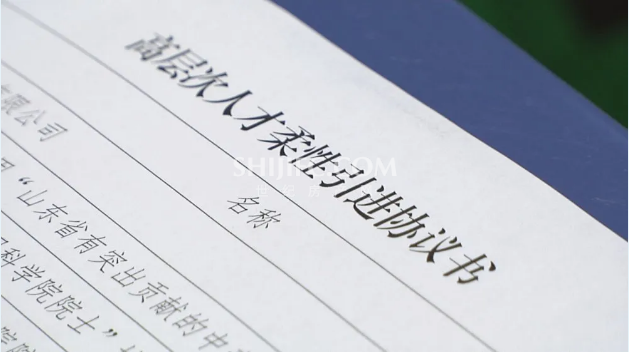 高层次人才柔性引进协议书
名称
有限公司
“山东省有突出贡献的中
科学院院士”
SHIJUE.COM